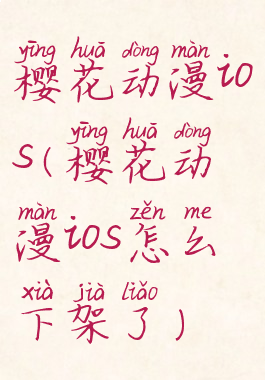 yīng huā dòng màn
樱花动漫io
yīng huā dòng
s(樱花动
màn zěn me
漫ios怎么
xià jià liǎo
下架了)